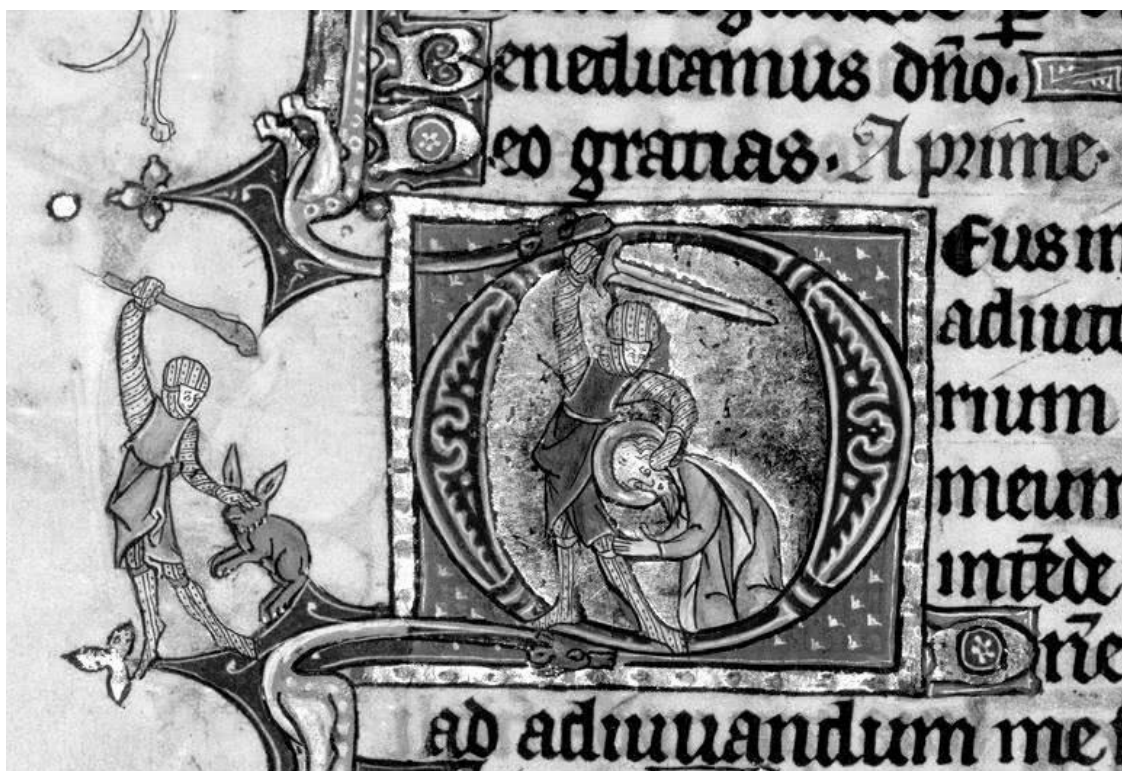 Benedicamus dño.
Deo gratias. A prime.
Deus in
adiuto
rium
meum
intẽde
Dñe
ad adiuuandum me f